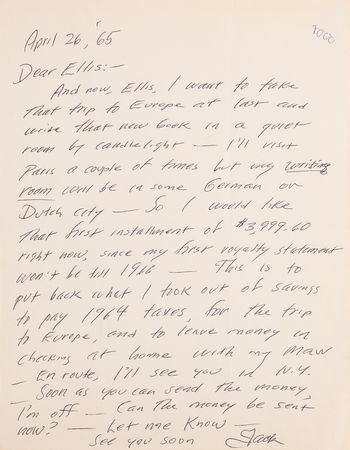 7000
April 26, '65
Dear Ellis:—
And now, Ellis, I want to take
that trip to Europe at last and
write that new book in a quiet
room by candlelight — I'll visit
Paris a couple of times but my writing
room will be in some German or
Dutch city — So I would like
that first installment of $3,999.60
right now, since my first royalty statement
won't be till 1966 — This is to
put back what I took out of savings
to pay 1964 taxes, for the trip
to Europe, and to leave money in
checking at home with my maw
— En route, I'll see you in N.Y.
— Soon as you can send the money,
I'm off — Can the money be sent
now? — Let me know —
See you soon Jack